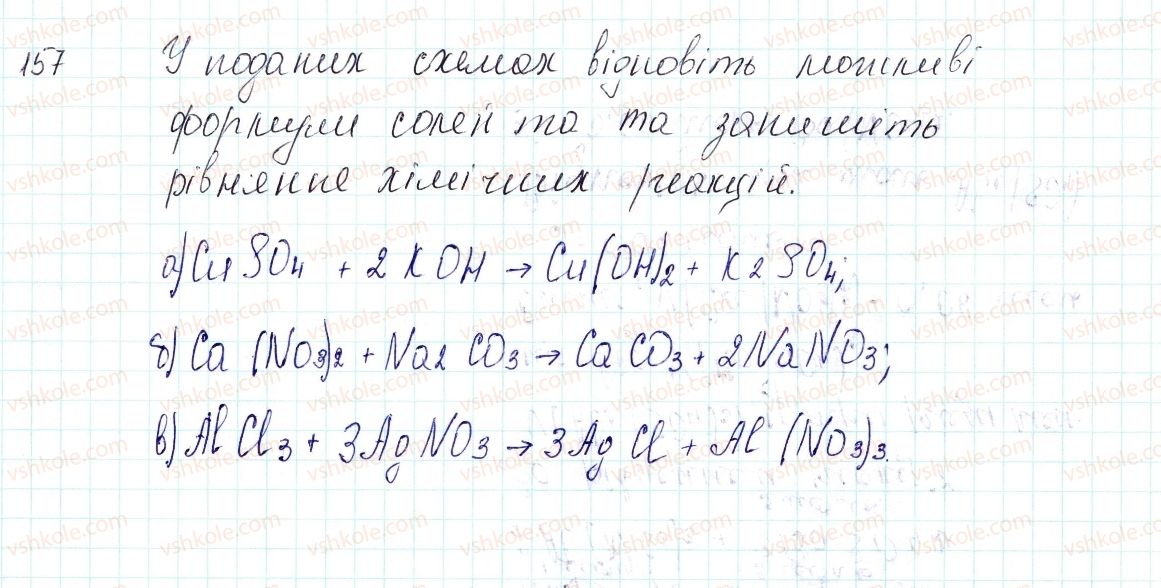 157 У поданих схемах відповіть можливі
формули солей та та запишіть
рівняння хімічних реакцій.
а) CuSO4 + 2KOH → Cu(OH)2 + K2SO4;
б) Ca(NO3)2 + Na2CO3 → CaCO3 + 2NaNO3;
в) AlCl3 + 3AgNO3 → 3AgCl + Al(NO3)3.